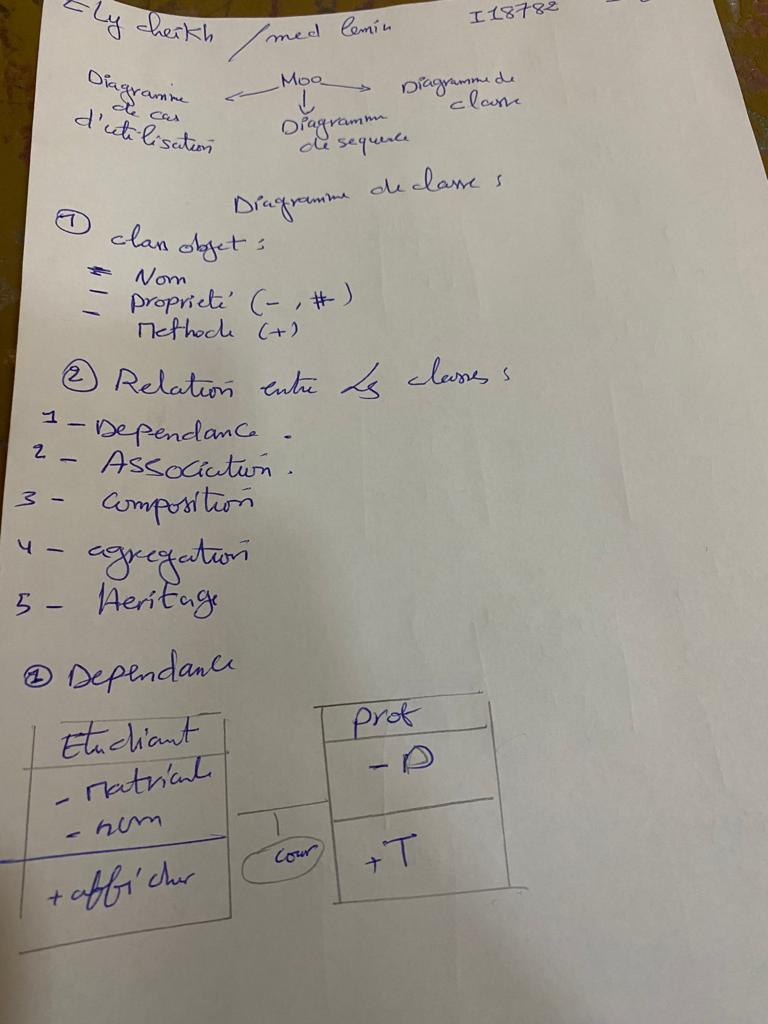 Cly cheikh / med lemin I18782
Moo
Diagramme
de cas
d'utilisation
Diagramme
de sequence
Diagramme de
classe
Diagramme de classe :
① class objet :
- Nom
- propriete' (- , #)
- Methode (+)
② Relation entre Ls classes :
1 - Dependance .
2 - Association .
3 - composition
4 - agregation
5 - Heritage
① Dependance
Etudiant
- Matricule
- nom
+ afficher
cour
prof
- D
+ T